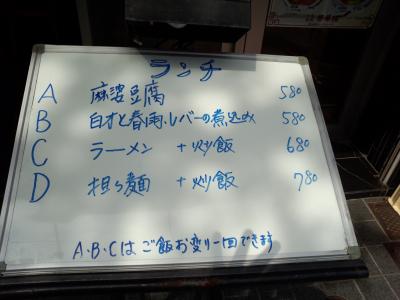 ランチ
A 麻婆豆腐 580
B 白才と春雨、レバーの煮込み 580
C ラーメン + 炒飯 680
D 担々麺 + 炒飯 780
A・B・Cはご飯お変り一回できます